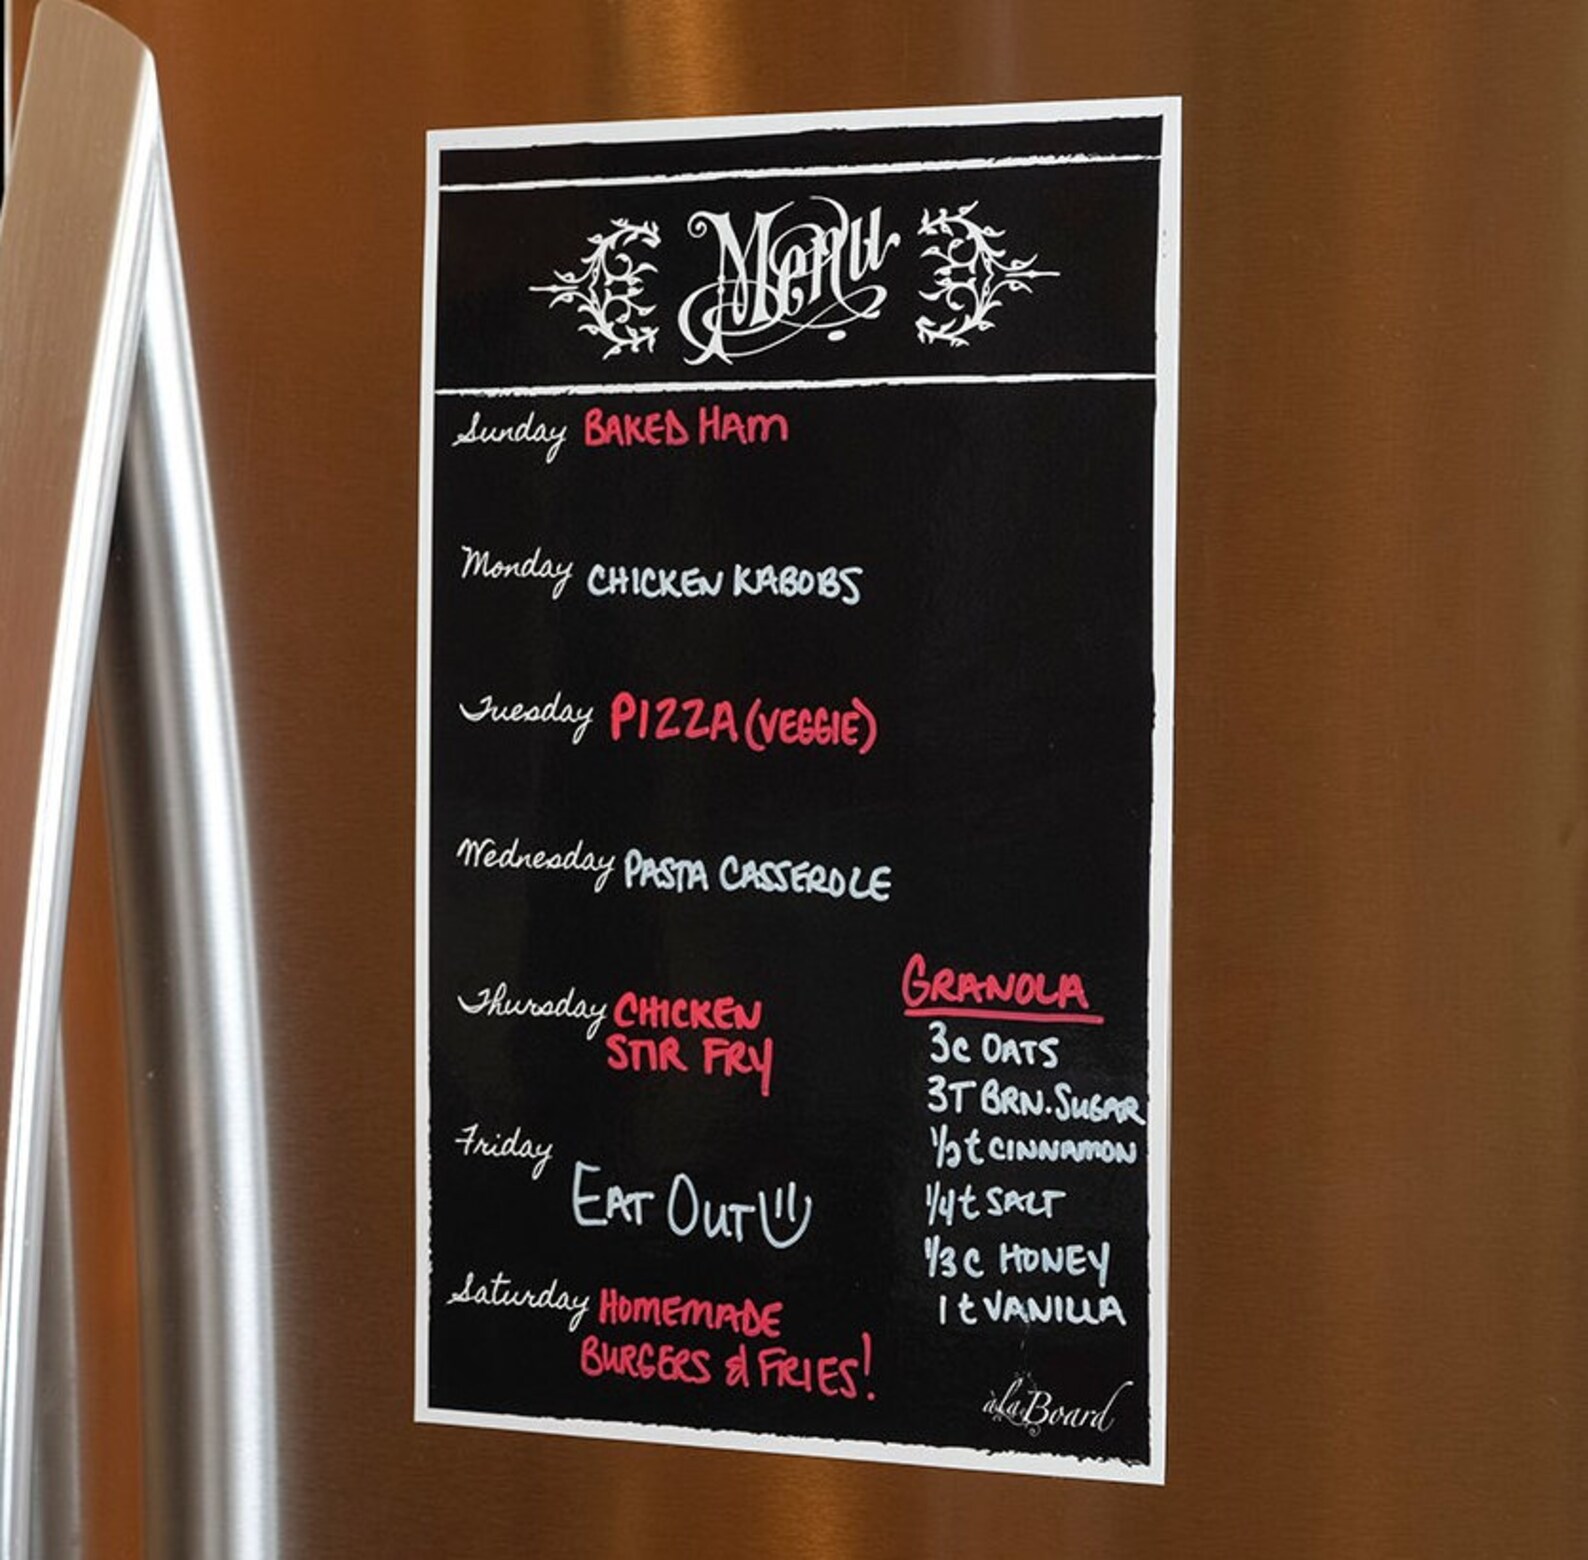 Menu
Sunday BAKED HAM
Monday CHICKEN KABOBS
Tuesday PIZZA (VEGGIE)
Wednesday PASTA CASSEROLE
Thursday CHICKEN
STIR FRY
Friday
EAT OUT
Saturday HOMEMADE
BURGERS & FRIES!
GRANOLA
3c OATS
3T BRN. SUGAR
1/2 t CINNAMON
1/4 t SALT
1/3 c HONEY
1 t VANILLA
alaBoard